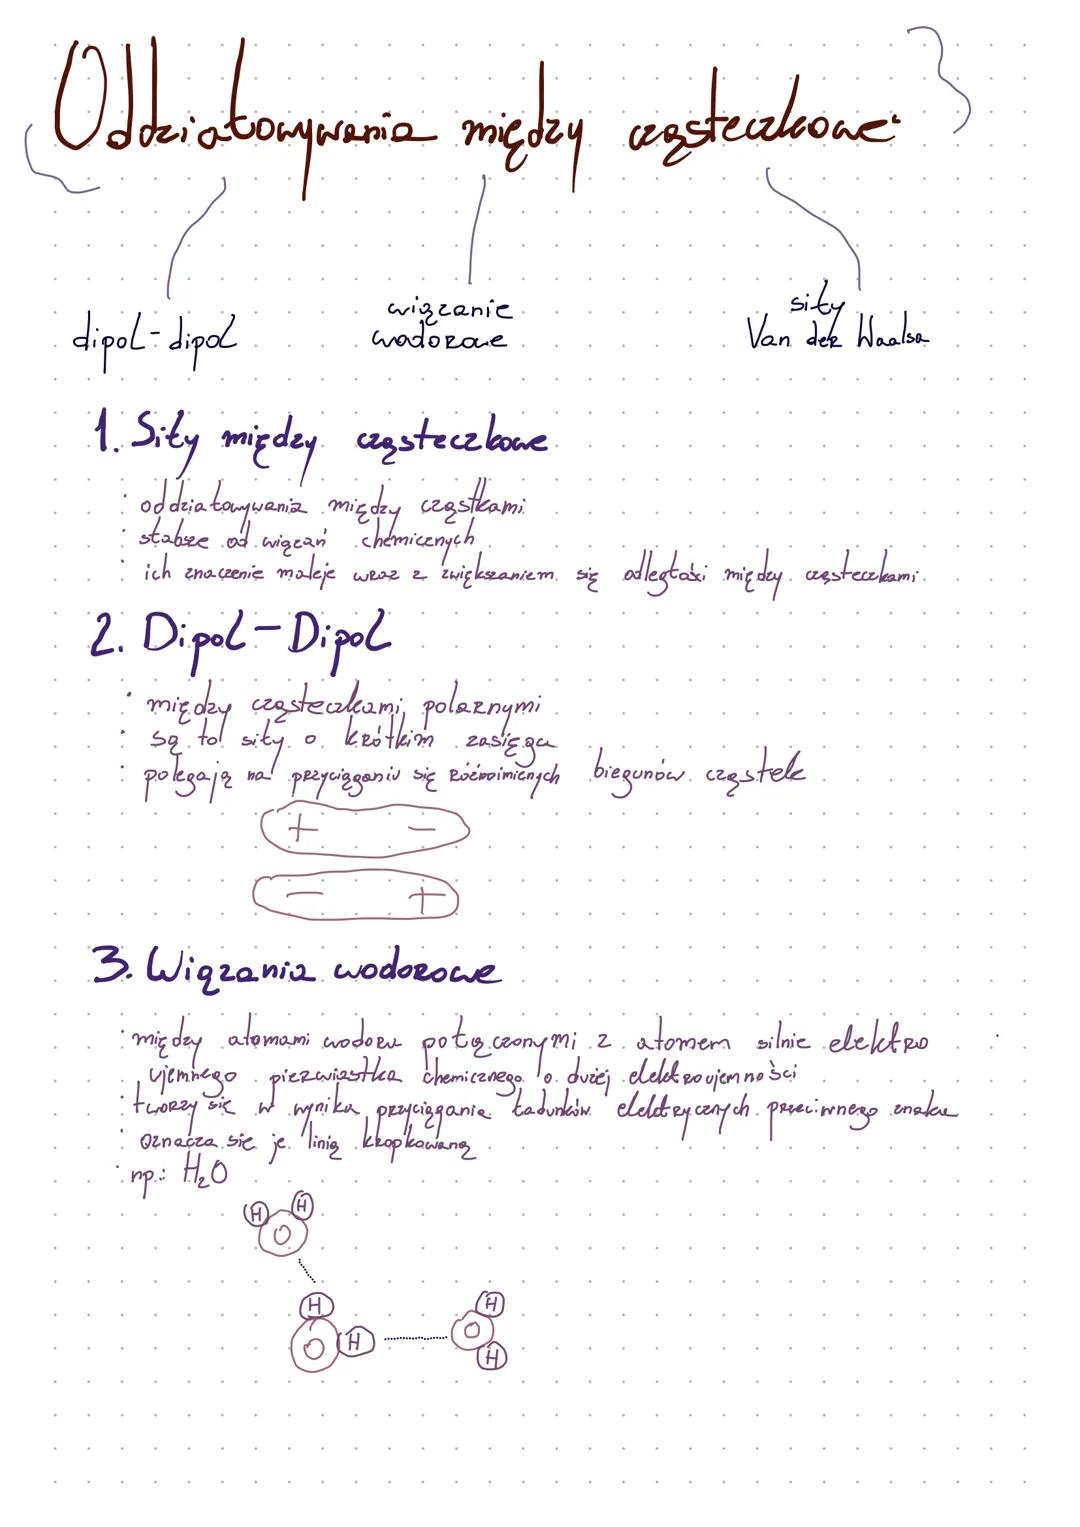 Oddziaływania między cząsteczkowe
dipol-dipol
wiązanie
wodorowe
siły
Van der Waalsa
1. Siły między cząsteczkowe
· oddziaływania między cząstkami
· słabsze od wiązań chemicznych
· ich znaczenie maleje wraz z zwiększaniem się odległości między cząsteczkami
2. Dipol-Dipol
· między cząsteczkami polarnymi
· są to siły o krótkim zasięgu
· polegają na przyciąganiu się różnoimiennych biegunów cząstek
+ −
− +
3. Wiązania wodorowe
· między atomami wodoru połączonymi z atomem silnie elektro
ujemnego pierwiastka chemicznego o dużej elektroujemności
· tworzy się w wyniku przyciągania ładunków elektrycznych przeciwnego znaku
· oznacza się je linią kropkowaną
· np.: H₂O
H H
O
H H
O H O
H